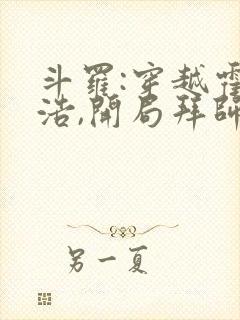 斗羅:穿越霍
浩,開局拜師
另一夏